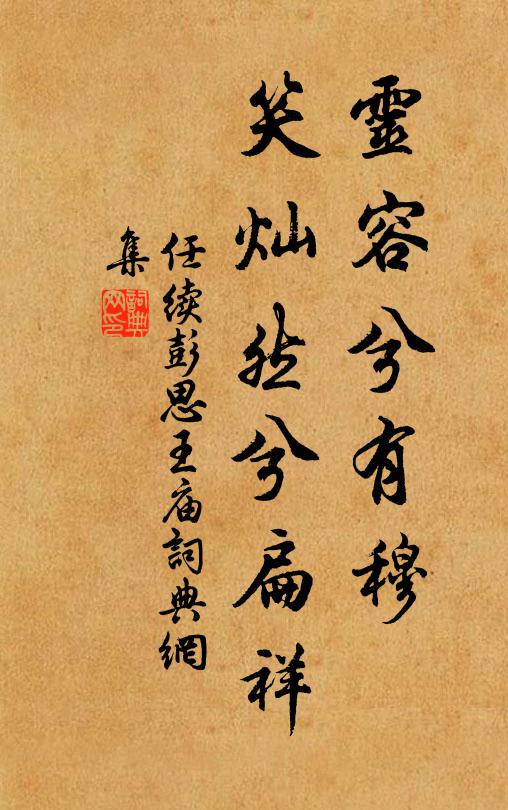 靈容兮有穆
笑灿然兮扁祥
任续彭思王庙詞典網
集
詞典网印